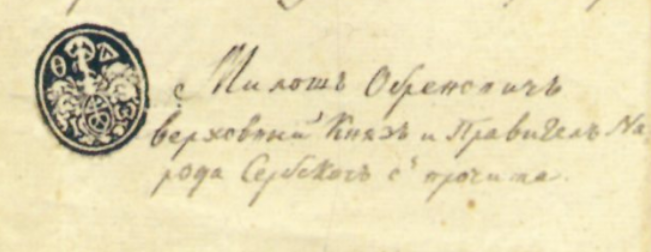 Ѳ Д
Милошъ Обреновичъ
верховный Князъ и Правителъ На
рода Сербскогъ с' прочима.